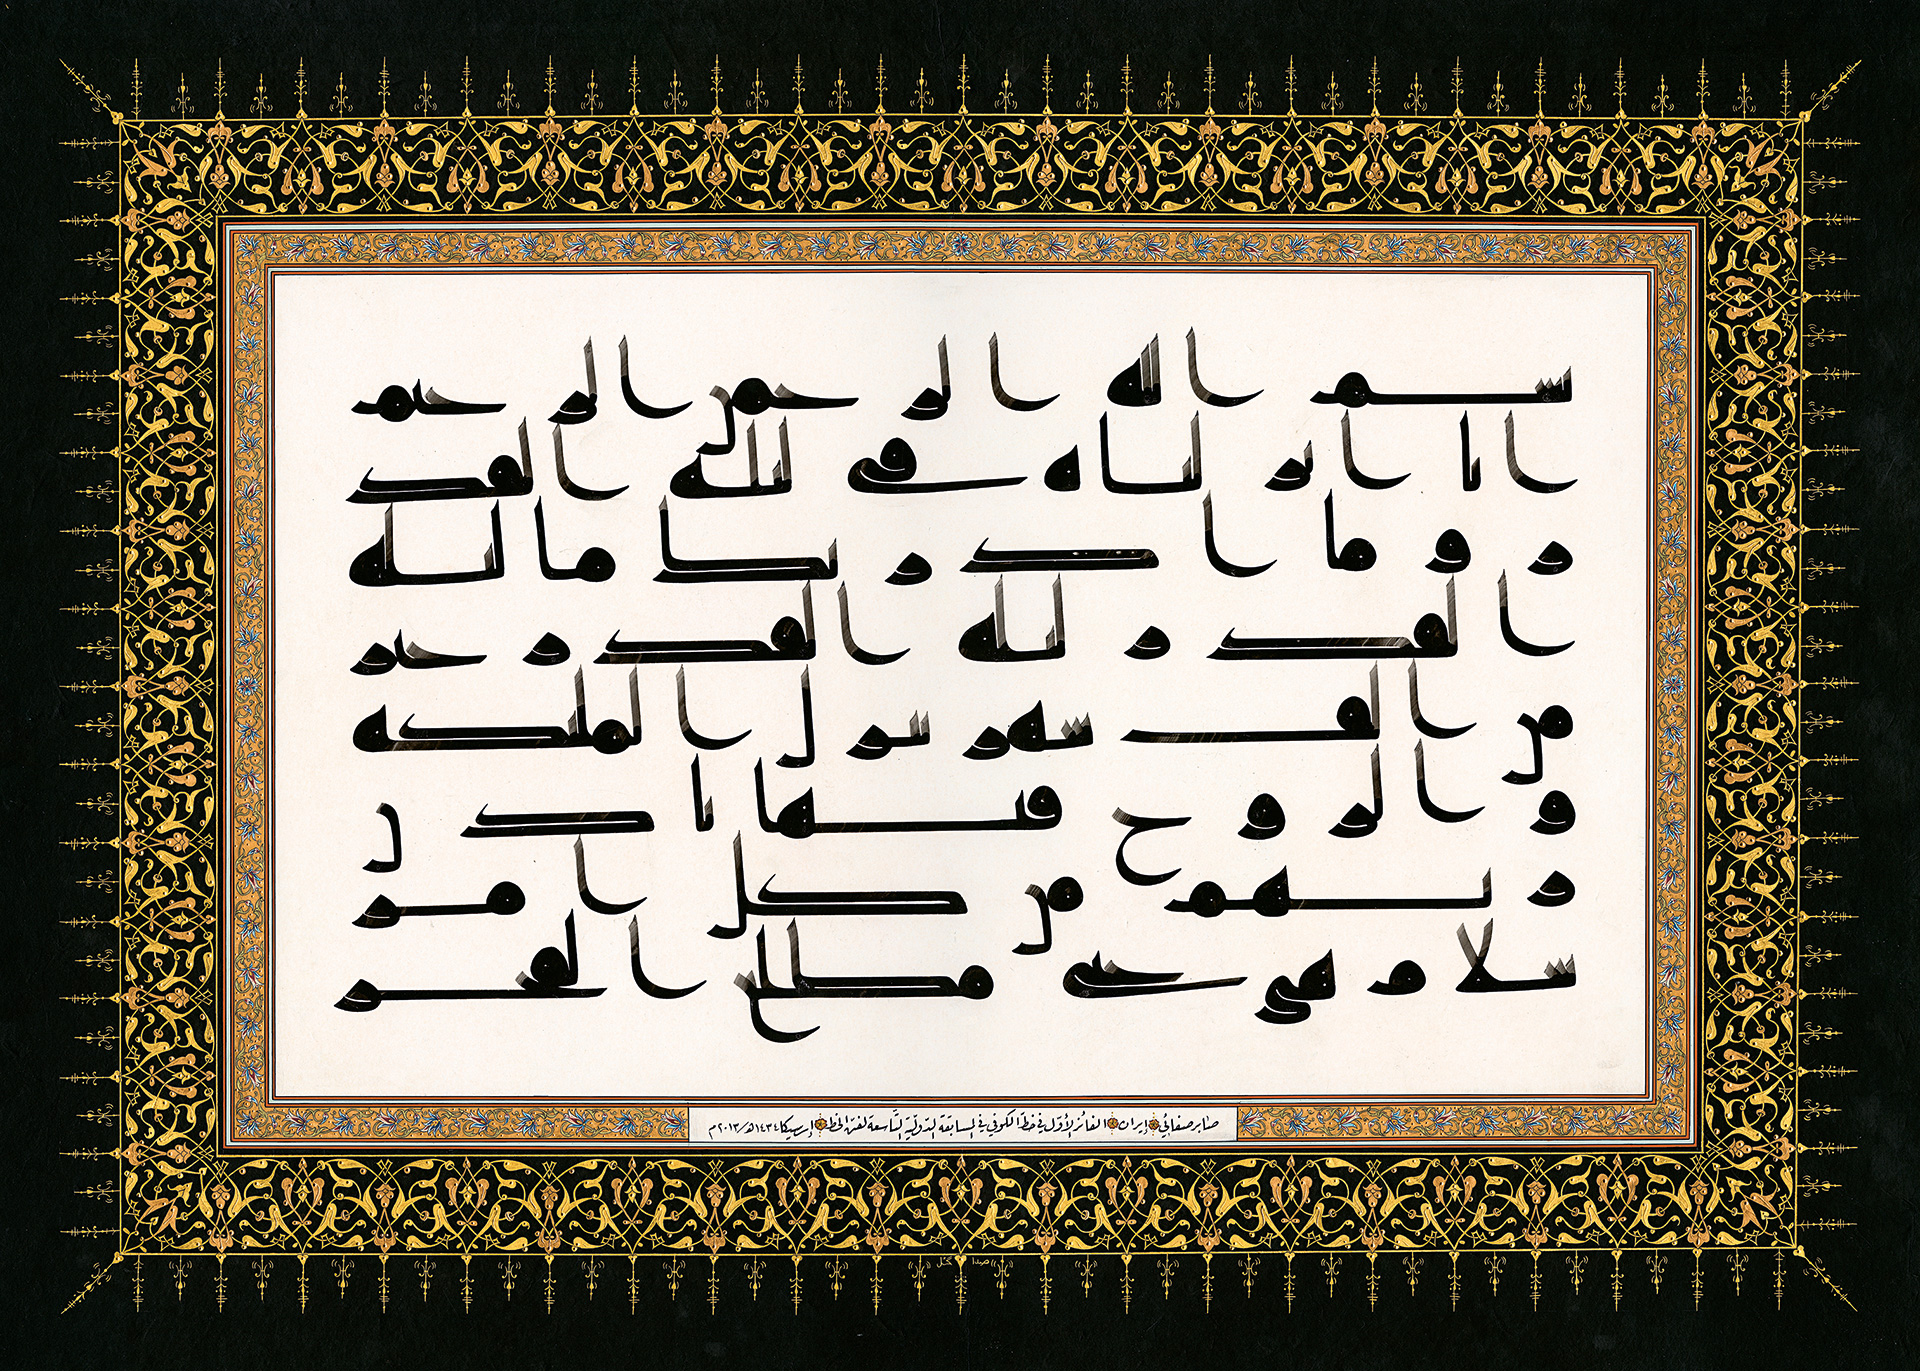 بسم الله الرحمن الرحيم
انا انزلناه في ليلة القد
ر وما ادريك ما ليلة
القدر ليلة القدر خير
من الف شهر تنزل الملئكة
و الروح فيها باذن
ربهم من كل امر
سلام هي حتى مطلع الفجر
صابر صفائي إيران الفائز الأوّل في خطّ الكوفي في المسابقة الدّوليّة التّاسعة لفنّ الخطّ إرسيكا ١٤٣٤هـ/٢٠١٣م